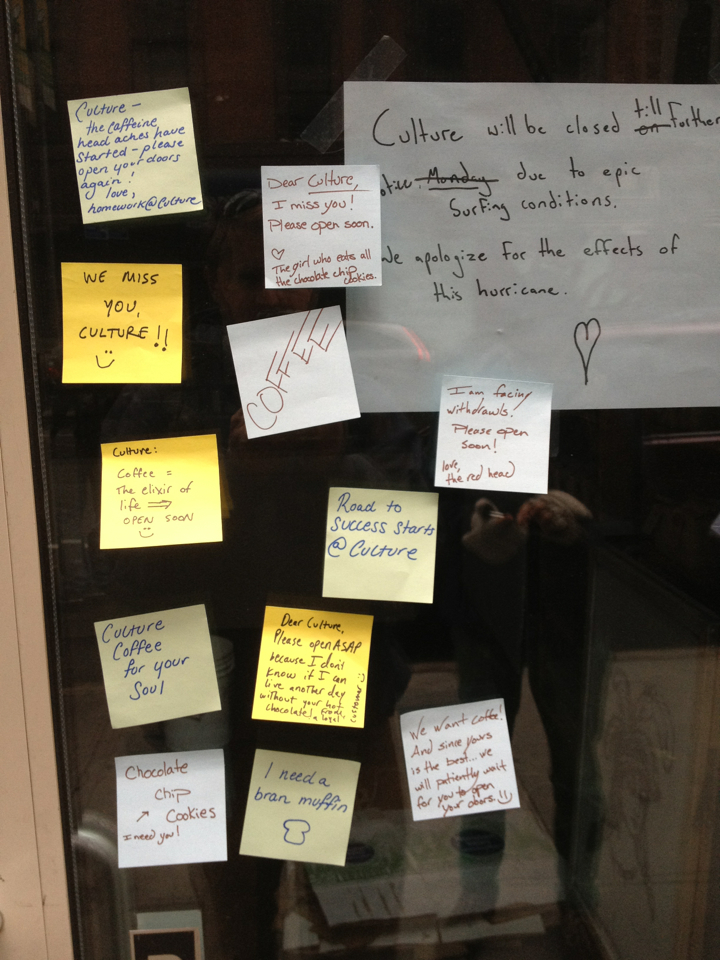 Culture -
the caffeine
head aches have
started - please
open your doors
again!
love,
homework@Culture
Dear Culture,
I miss you!
Please open soon.
The girl who eats all
the chocolate chip
cookies.
Culture will be closed till on further
Monday due to epic
Surfing conditions.
We apologize for the effects of
this hurricane.
WE MISS
YOU,
CULTURE!!
COFFEE
I am facing
withdrawls!
Please open
soon!
love,
the red head
Culture:
Coffee =
The elixir of
life ⇒
OPEN SOON
Road to
success starts
@ Culture
Culture
Coffee
for your
Soul
Dear Culture,
Please open ASAP
because I don't
know if I can
live another day
without your hot
chocolate! From,
a loyal
customer
We want coffee!
And since yours
is the best...we
will patiently wait
for you to open
your doors!!
Chocolate
chip
↗ Cookies
I need you!
I need a
bran muffin